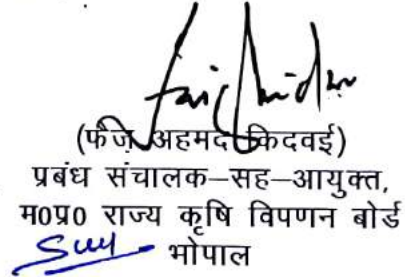 (फैज़ अहमद किदवई)
प्रबंध संचालक–सह–आयुक्त,
म०प्र० राज्य कृषि विपणन बोर्ड
भोपाल